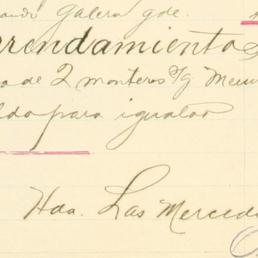 Galera gde.
rrendamientos
de 2 monteros o/g
ldo para igualar
Hda. Las Merced